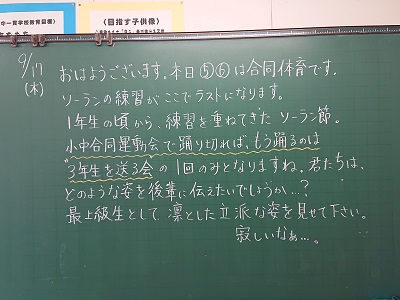 〈目指す子供像〉
9/17
(木)
おはようございます。本日⑤⑥は合同体育です。
ソーランの練習がここでラストになります。
1年生の頃から、練習を重ねてきたソーラン節。
小中合同運動会で踊り切れば、もう踊るのは
"3年生を送る会"の1回のみとなりますね。君たちは、
どのような姿を後輩に伝えたいでしょうか…?
最上級生として、凛とした立派な姿を見せて下さい。
寂しいなぁ…。